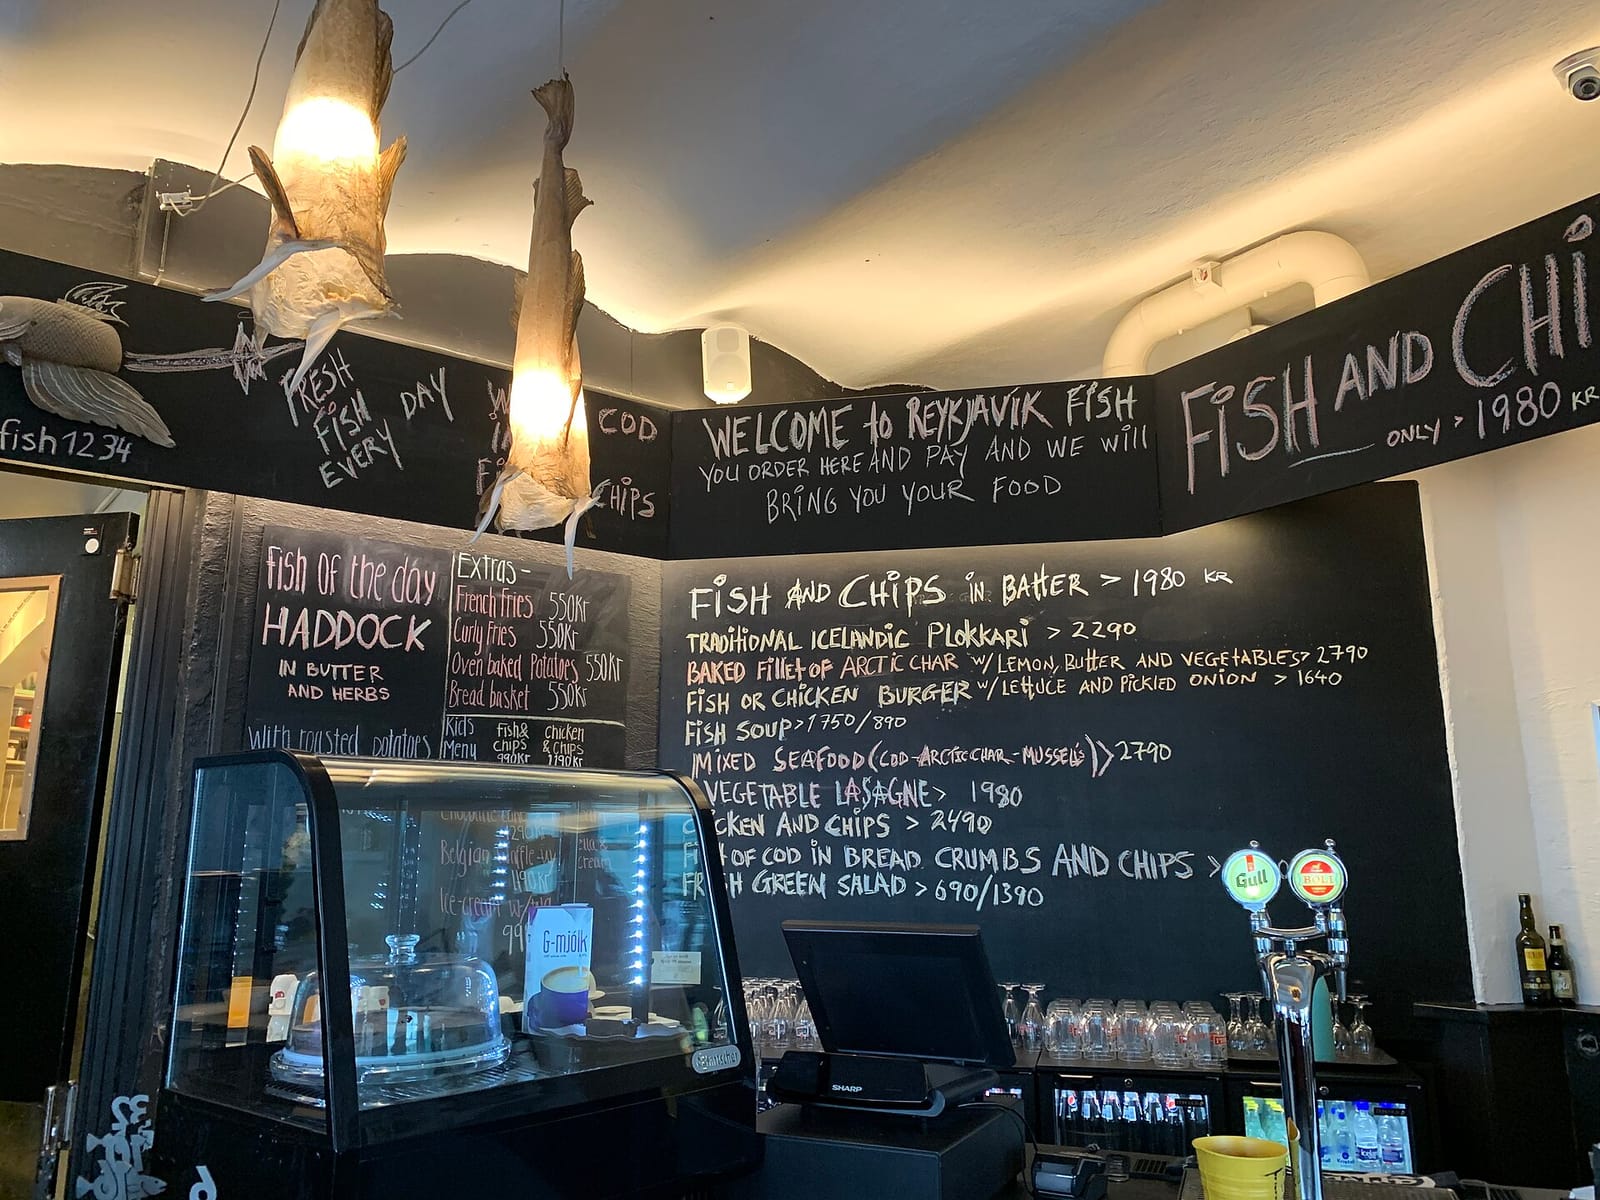 fish1234
FRESH
FISH
EVERY
DAY
COD
CHIPS
WELCOME to REYKJAVIK FISH
YOU ORDER HERE AND PAY AND WE WILL
BRING YOU YOUR FOOD
FISH AND CHI
ONLY > 1980 KR
Fish Of the day
HADDOCK
IN BUTTER
AND HERBS
With roasted potatoes
Extras -
French Fries 550Kr
Curly Fries 550Kr
Oven baked Potatoes 550Kr
Bread basket 550Kr
Kids Menu
Fish & chips 990Kr
chicken & chips 1190Kr
Belgian Waffle
1190Kr
Ice-cream w/
FISH AND CHIPS IN BATTER > 1980 KR
TRADITIONAL ICELANDIC PLOKKARI > 2290
BAKED FILLET OF ARCTIC CHAR W/ LEMON, BUTTER AND VEGETABLES > 2790
FISH OR CHICKEN BURGER W/ LETTUCE AND PICKLED ONION > 1640
FISH SOUP > 1750/890
MIXED SEAFOOD (COD-ARCTIC CHAR-MUSSELS) > 2790
VEGETABLE LASAGNE > 1980
CKEN AND CHIPS > 2490
OF COD IN BREAD CRUMBS AND CHIPS >
FR H GREEN SALAD > 690/1390
Gull
BOLI
G-mjólk
SHARP